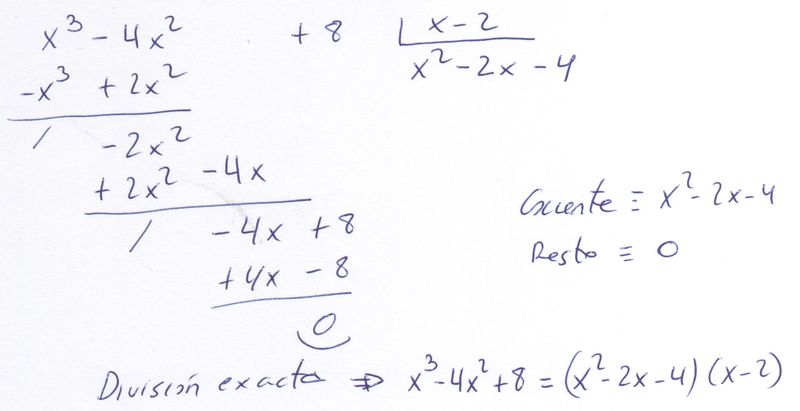 x³ - 4x² + 8 | x - 2
-x³ + 2x² x² - 2x - 4
/ - 2x²
+ 2x² - 4x
/ - 4x + 8
Cociente ≡ x² - 2x - 4
+ 4x - 8
Resto ≡ 0
0
División exacta ⇒ x³ - 4x² + 8 = (x² - 2x - 4) (x - 2)